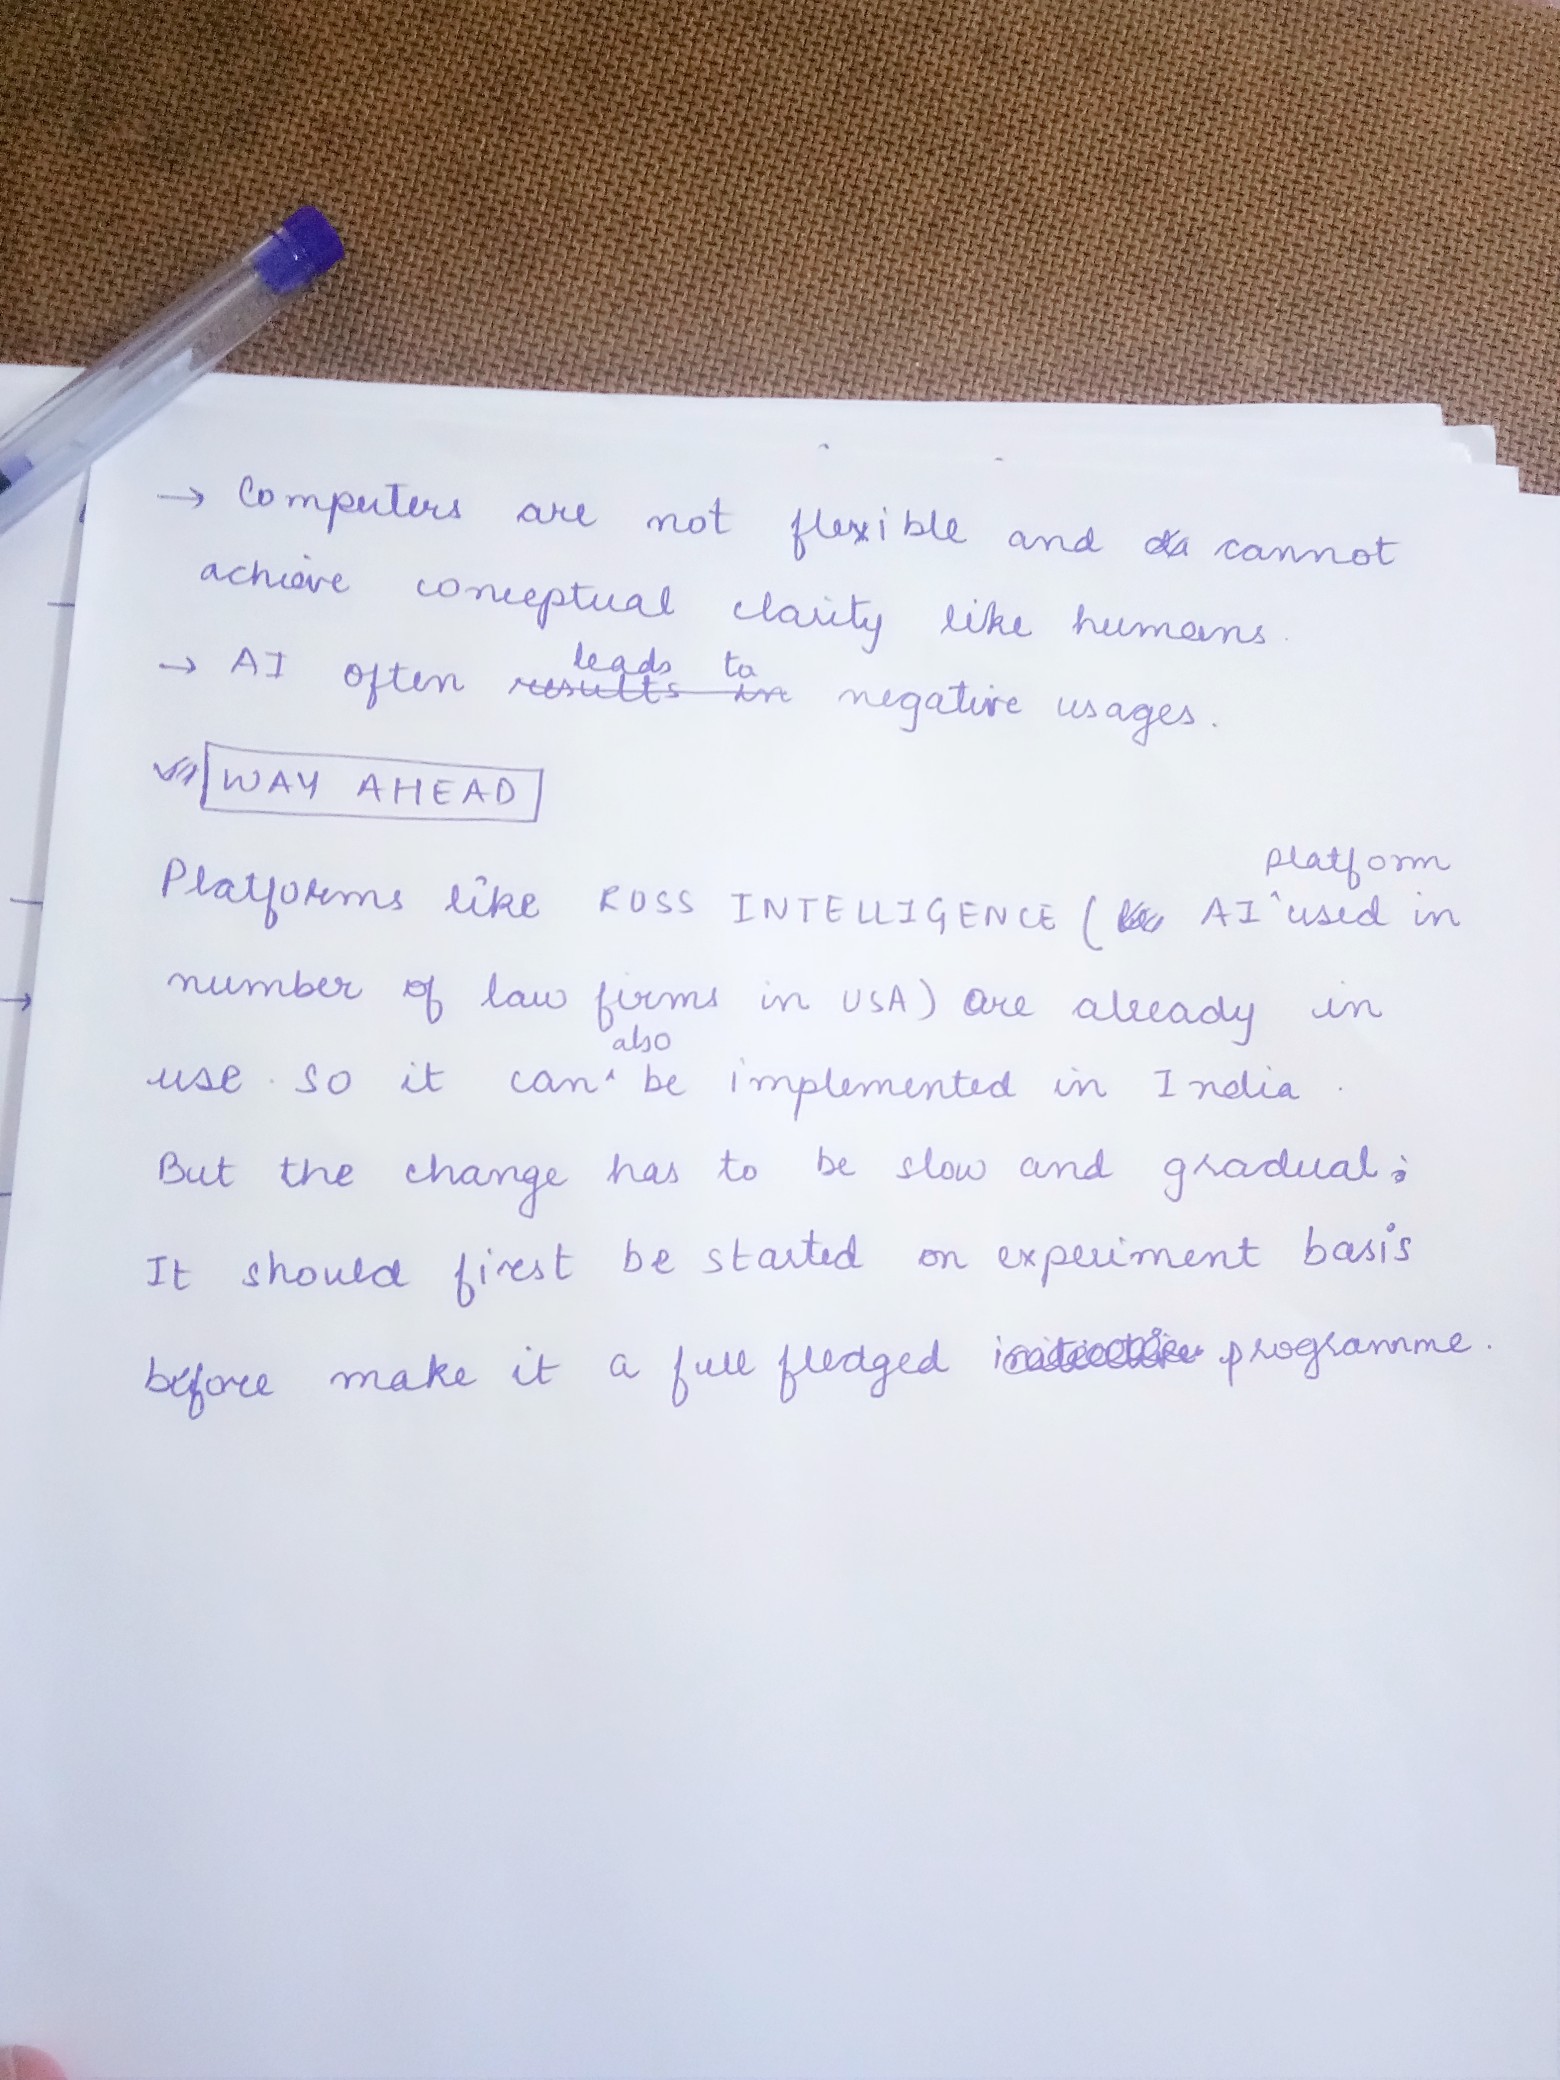 → Computers are not flexible and cannot
achieve conceptual clarity like humans.
→ AI often leads to results in negative usages.
WAY AHEAD
Platforms like ROSS INTELLIGENCE ( AI platform used in
number of law firms in USA) are already in
use. So it can also be implemented in India.
But the change has to be slow and gradual;
It should first be started on experiment basis
before make it a full fledged programme.